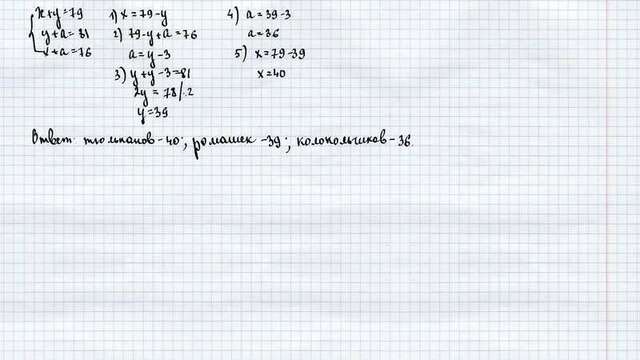 x+y=79
y+a=81
x+a=76
1) x=79-y
2) 79-y+a=76
a=y-3
3) y+y-3=81
2y=78/:2
y=39
4) a=39-3
a=36
5) x=79-39
x=40
Ответ: тюльпанов-40; ромашек-39; колокольчиков-36.